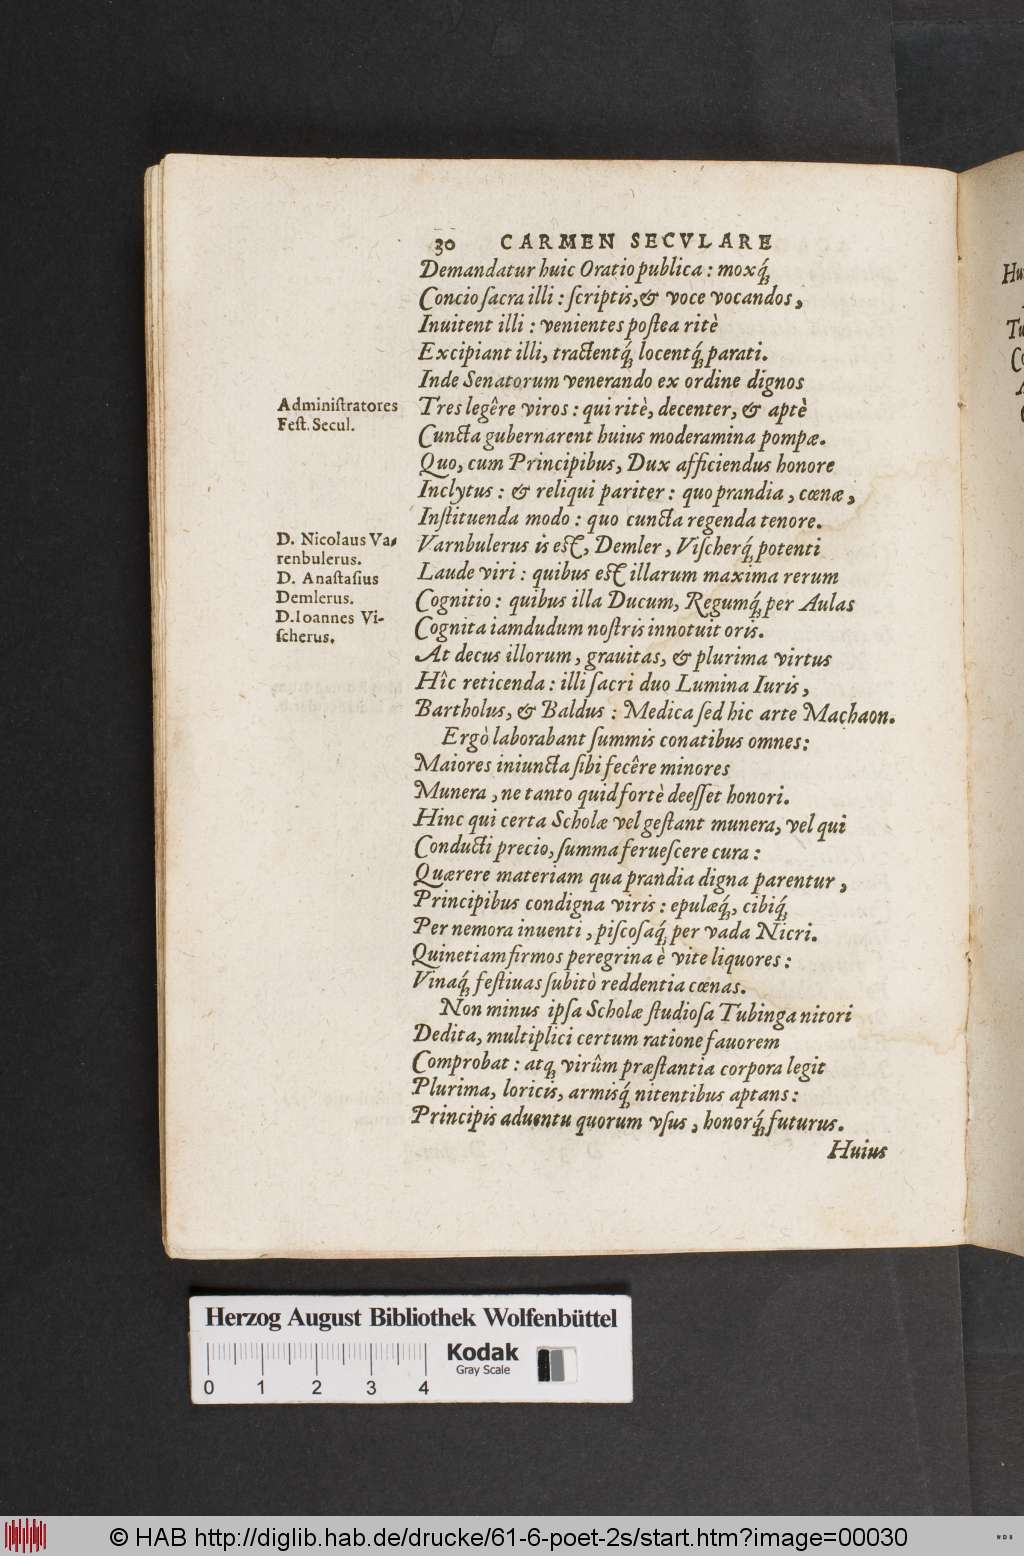 30 CARMEN SECVLARE
Demandatur huic Oratio publica : moxq́;
Concio sacra illi : scriptis, & voce vocandos,
Inuitent illi : venientes postea ritè
Excipiant illi, tractentq́; locentq́; parati.
Inde Senatorum venerando ex ordine dignos
Administratores
Fest. Secul.
Tres legêre viros : qui ritè, decenter, & aptè
Cuncta gubernarent huius moderamina pompæ.
Quo, cum Principibus, Dux afficiendus honore
Inclytus : & reliqui pariter : quo prandia, cœnæ,
Instituenda modo : quo cuncta regenda tenore.
D. Nicolaus Va-
renbulerus.
D. Anastasius
Demlerus.
D. Ioannes Vi-
scherus.
Varnbulerus is est, Demler, Vischerq́; potenti
Laude viri : quibus est illarum maxima rerum
Cognitio : quibus illa Ducum, Regumq́; per Aulas
Cognita iamdudum nostris innotuit oris.
At decus illorum, grauitas, & plurima virtus
Hîc reticenda : illi sacri duo Lumina Iuris,
Bartholus, & Baldus : Medica sed hic arte Machaon.
Ergò laborabant summis conatibus omnes :
Maiores iniuncta sibi fecêre minores
Munera, ne tanto quid fortè deesset honori.
Hinc qui certa Scholæ vel gestant munera, vel qui
Conducti precio, summa feruescere cura :
Quærere materiam qua prandia digna parentur,
Principibus condigna viris : epulæq́;, cibiq́;
Per nemora inuenti, piscosaq́; per vada Nicri.
Quinetiam firmos peregrina è vite liquores :
Vinaq́; festiuas subitò reddentia cœnas.
Non minus ipsa Scholæ studiosa Tubinga nitori
Dedita, multiplici certum ratione fauorem
Comprobat : atq; virûm præstantia corpora legit
Plurima, loricis, armisq́; nitentibus aptans :
Principis aduentu quorum vsus, honorq́; futurus.
Huius
Herzog August Bibliothek Wolfenbüttel
Kodak
Gray Scale
0 1 2 3 4
© HAB http://diglib.hab.de/drucke/61-6-poet-2s/start.htm?image=00030